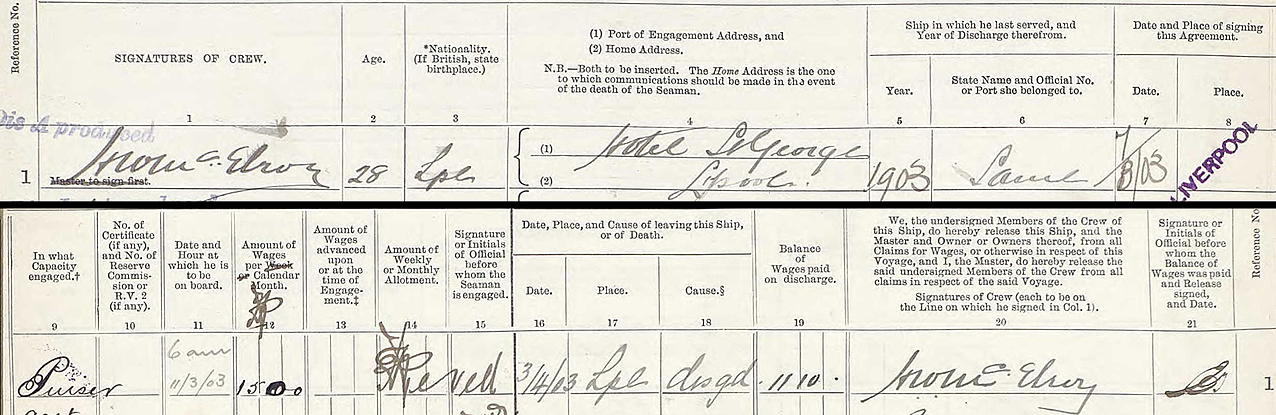 Reference No.
SIGNATURES OF CREW.
Age.
*Nationality.
(If British, state
birthplace.)
(1) Port of Engagement Address, and
(2) Home Address.
N.B.—Both to be inserted. The Home Address is the one
to which communications should be made in the event
of the death of the Seaman.
Ship in which he last served, and
Year of Discharge therefrom.
Year.
State Name and Official No.
or Port she belonged to.
Date and Place of signing
this Agreement.
Date.
Place.
1 2 3 4 5 6 7 8
Dis A produced
1 HWMcElroy 28 Lpl (1) Hotel St George 1903 Same 7/3/03 LIVERPOOL
Master to sign first. (2) Lpool.
In what
Capacity
engaged.†
No. of
Certificate
(if any),
and No. of
Reserve
Commis-
sion or
R.V. 2
(if any).
Date and
Hour at
which he is
to be
on board.
Amount of
Wages
per Week
or Calendar
Month.
Amount of
Wages
advanced
upon
or at the
time of
Engage-
ment.‡
Amount of
Weekly
or Monthly
Allotment.
Signature
or Initials
of Official
before
whom the
Seaman
is engaged.
Date, Place, and Cause of leaving this Ship,
or of Death.
Date.
Place.
Cause.§
Balance
of
Wages paid
on discharge.
We, the undersigned Members of the Crew of
this Ship, do hereby release this Ship, and the
Master and Owner or Owners thereof, from all
Claims for Wages, or otherwise in respect of this
Voyage, and I, the Master, do hereby release the
said undersigned Members of the Crew from all
claims in respect of the said Voyage.
Signatures of Crew (each to be on
the Line on which he signed in Col. 1).
Signature or
Initials of
Official before
whom the
Balance of
Wages was paid
and Release
signed,
and Date.
Reference No
9 10 11 12 13 14 15 16 17 18 19 20 21
6 am
Purser 11/3/03 15 00 3/4/03 Lpl disgd 11 10 HWMcElroy 1